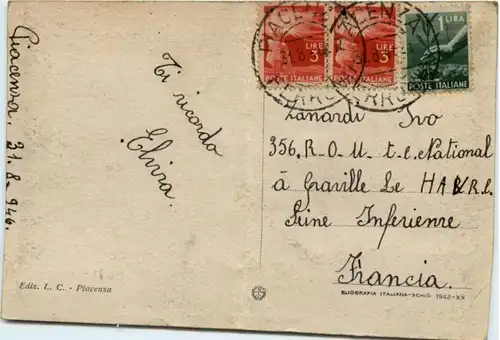 Piacenza. 31.8.946.
Ti ricordo
Elvira.
LIRE
3
POSTE ITALIANE
LIRE
3
POSTE ITALIANE
1 LIRA
POSTE ITALIANE
PIACENZA
FERROVIA
Zanardi Ivo
356. R. O. U. t. c. National
à Graville Le HAVRE.
Seine Inferienre
Francia.
Ediz. L. C. - Piacenza
ELIOGRAFIA ITALIANA-SCHIO 1942-XX